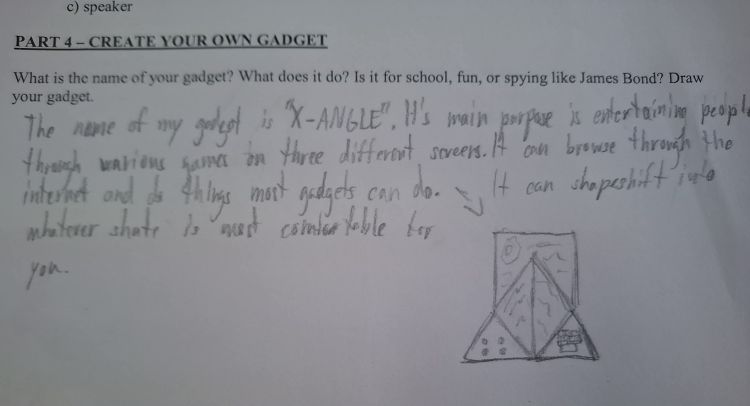 c) speaker
PART 4 – CREATE YOUR OWN GADGET
What is the name of your gadget? What does it do? Is it for school, fun, or spying like James Bond? Draw
your gadget.
The name of my gadget is "X-ANGLE". It's main purpose is entertaining people
through warious games on three different screens. It can browse through the
internet and do things most gadgets can do. It can shapeshift into
whatever shate is most comfortable for
you.